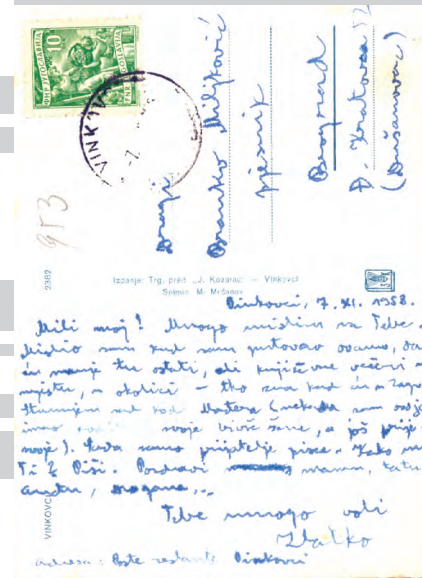 ФНР ЈУГОСЛАВИЈА
10
JUGOSLAVIJA
FNR
VINKOVCI
Dragi
Branko Miljković
pjesnik
Beograd
(Dušanovac)
953
2382
Izdanje: Trg. pred. „J. Kozarac" — Vinkovci
Snimio: M. Mrčanov
Vinkovci, 7. XI. 1958.
Mili moj! Mnogo mislim na Tebe.
Mislio sam kad sam putovao ovamo, da
ću manje tu ostati, ali književne večeri
mjestu, u okolici — tko zna kad ću u Zagreb
sad kod Matera (nekada sam
moje bivše žene, a još prije
moje). Kuda samo prijatelje pisce. Kako
Ti? Piši. Pozdravi mamu, tatu,
Dragana,...
Tebe mnogo voli
Zlatko
adresa: Poste restante Vinkovci
VINKOVCI